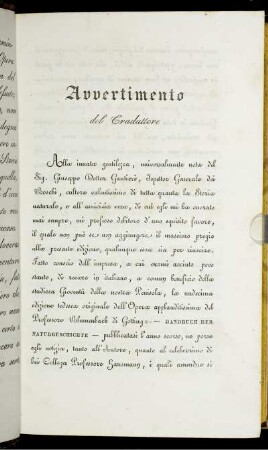 Avvertimento
del Traduttore
Alla innata gentilezza, universalmente nota del
Sig. Giuseppe Odetton Gautieri, Ispettor Generale dei
Boschi, cultore valentissimo di tutta quanta la Storia
naturale, e all'amicizia vera, di cui egli mi ha onorato
mai sempre, mi professo debitore d'uno squisito favore,
il quale non può se non aggiungere il massimo pregio
alla presente edizione, qualunque essa sia per riuscire.
Fatto conscio dell'impresa, a cui erami accinto pre-
stante, di recare in italiano, a comun benefizio della
studiosa Gioventù della nostra Penisola, la undecima
edizione tedesca originale dell'Opera applauditissima del
Professore Blumenbach di Gottinga — HANDBUCH DER
NATURGESCHICHTE — pubblicatasi l'anno scorso, ne porse
egli notizia, tanto all'Autore, quanto al celeberrimo di
lui Collega Professore Hausmann, i quali amendue si